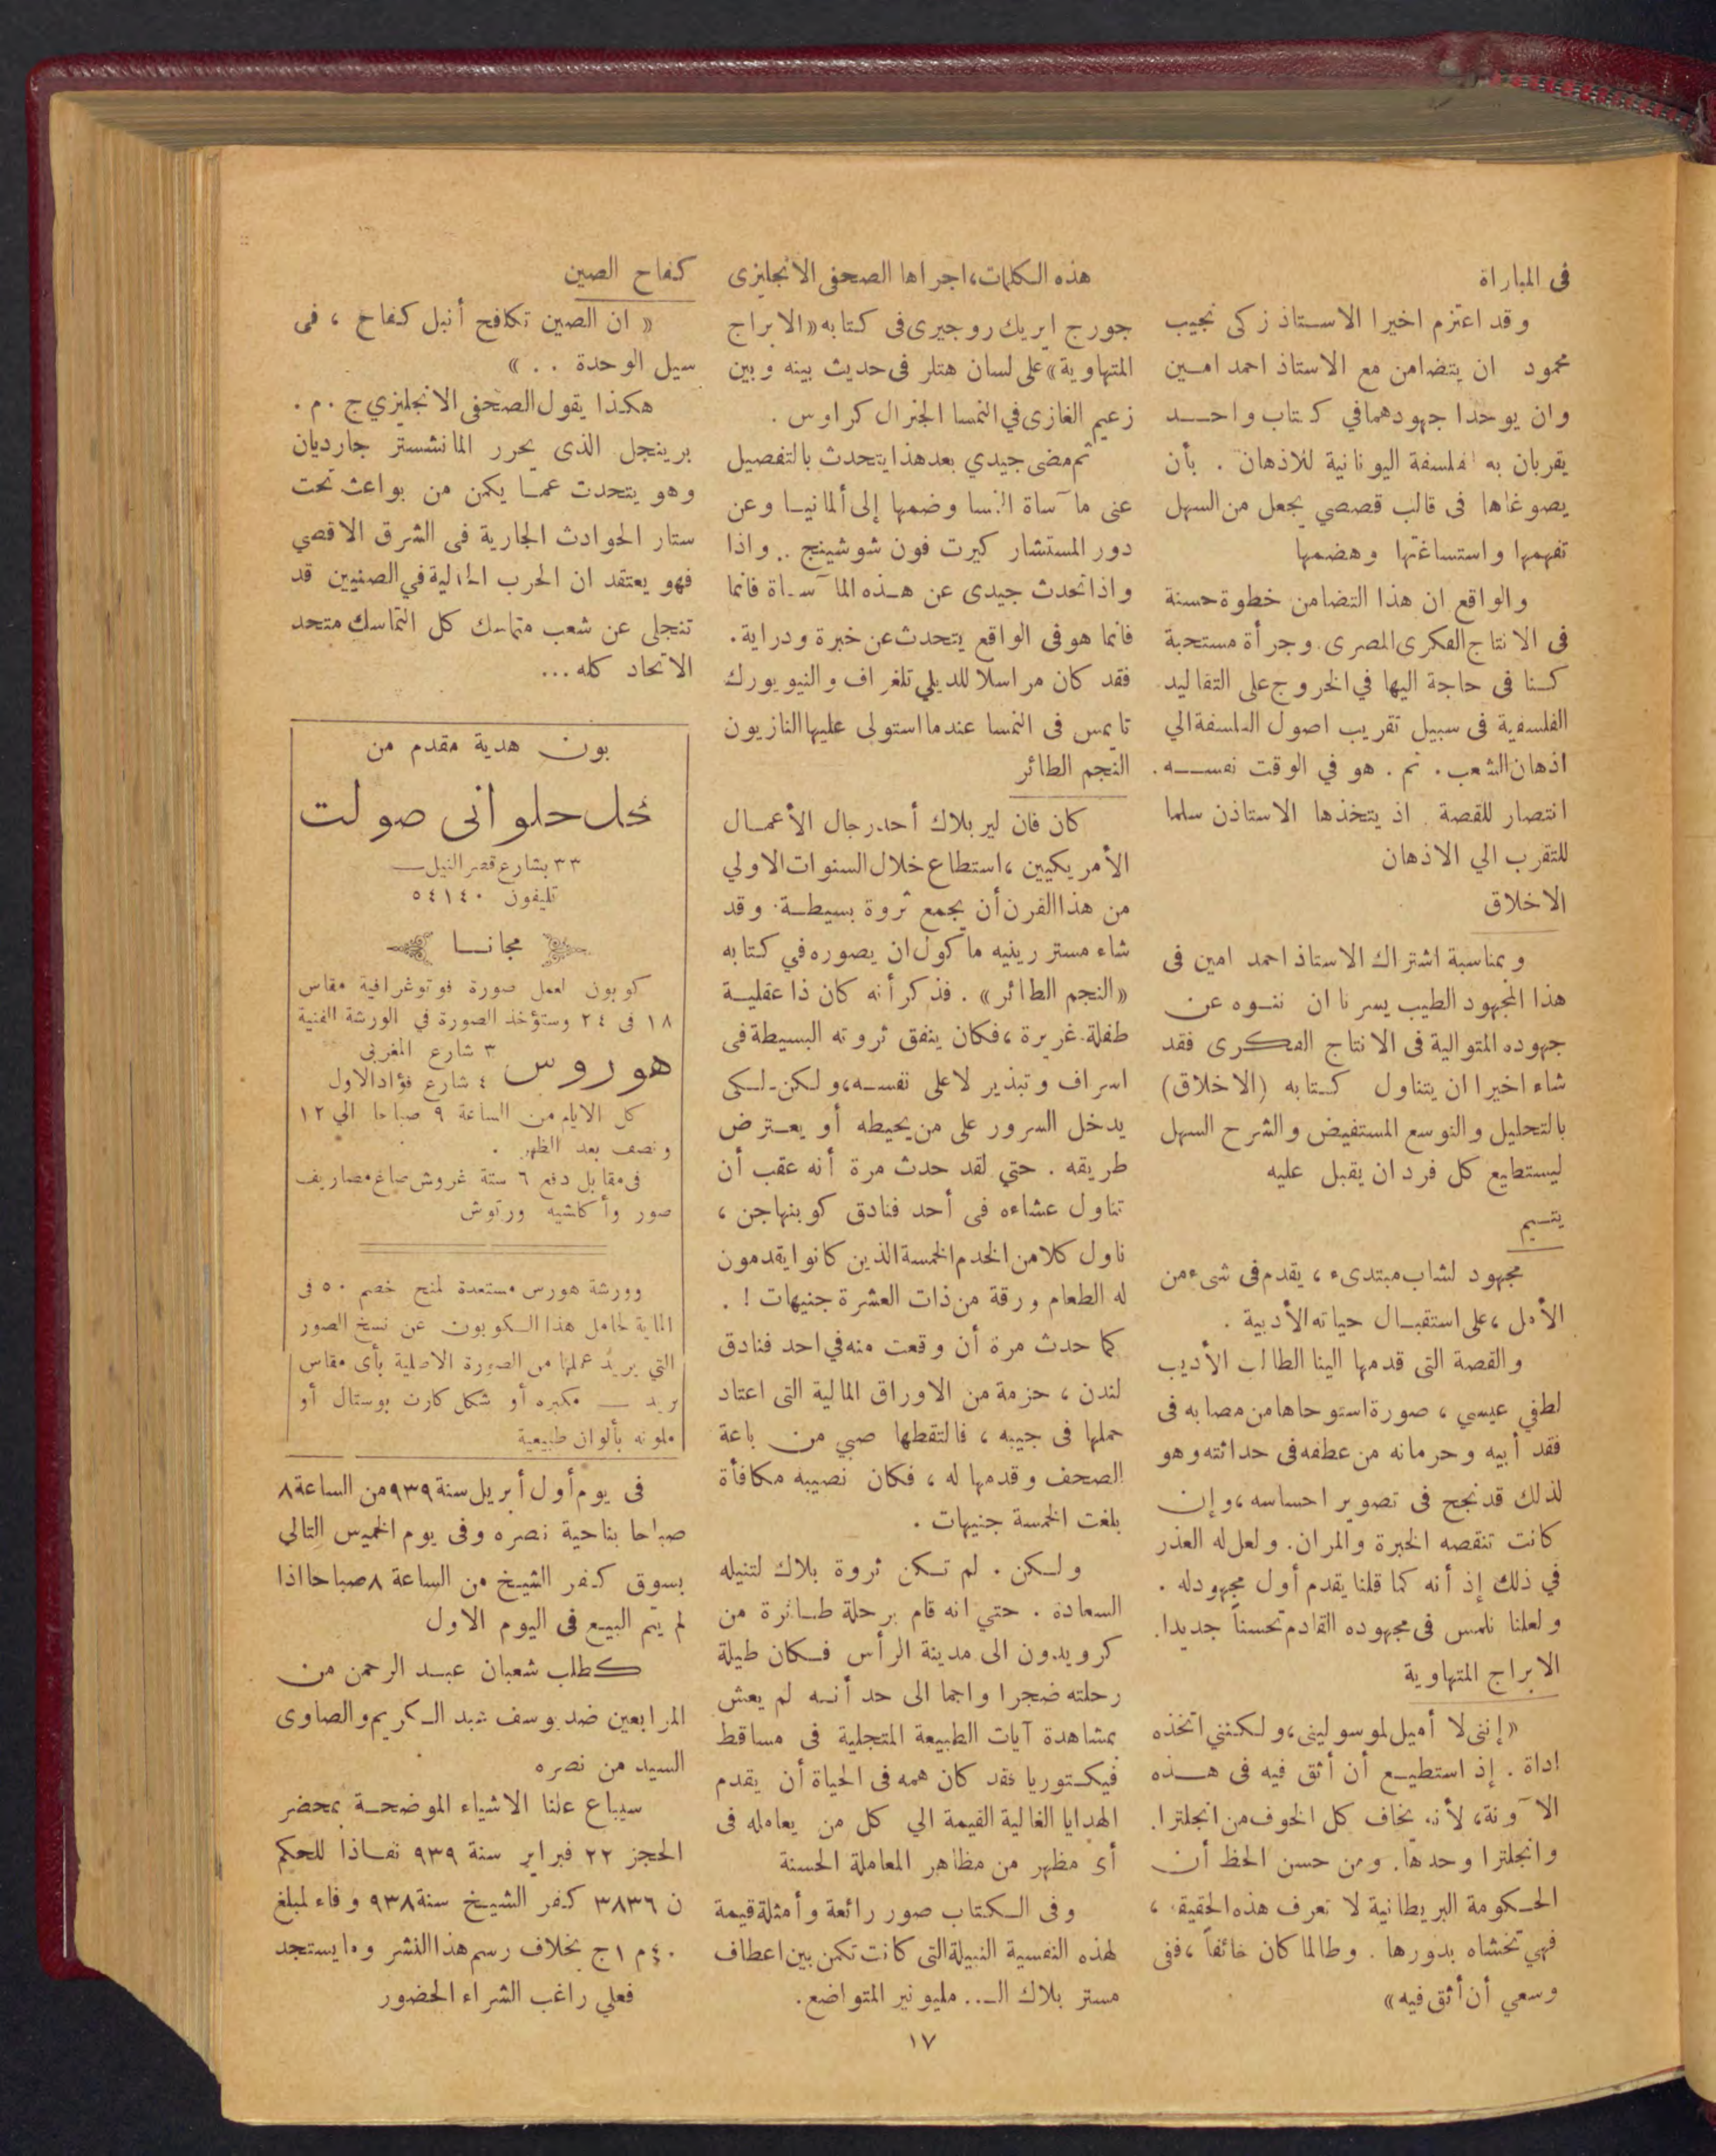 فى المباراة
وقد اعتزم اخيرا الاستاذ زكى نجيب
محمود ان يتضامن مع الاستاذ احمد امين
وان يوحدا جهودهما في كتاب واحد
يقربان به الفلسفة اليونانية للاذهان . بأن
يصوغاها فى قالب قصصي يجعل من السهل
تفهمها واستساغتها وهضمها
والواقع ان هذا التضامن خطوة حسنة
فى الانتاج الفكرى المصرى . وجرأة مستحبة
كنا فى حاجة اليها في الخروج على التقاليد
الفلسفية فى سبيل تقريب اصول الفلسفة الي
اذهان الشعب . ثم . هو في الوقت نفسه .
انتصار للقصة . اذ يتخذها الاستاذن سلما
للتقرب الي الاذهان
الاخلاق
وبمناسبة اشتراك الاستاذ احمد امين فى
هذا المجهود الطيب يسرنا ان ننوه عن
جهوده المتوالية فى الانتاج الفكرى فقد
شاء اخيرا ان يتناول كتابه (الاخلاق)
بالتحليل والتوسع المستفيض والشرح السهل
ليستطيع كل فرد ان يقبل عليه
يتيم
مجهود لشاب مبتدىء ، يقدم فى شىء من
الأمل ، على استقبال حياته الأدبية .
والقصة التى قدمها الينا الطالب الأديب
لطفي عيسي ، صورة استوحاها من مصابه فى
فقد أبيه وحرمانه من عطفه فى حداثته وهو
لذلك قد نجح فى تصوير احساسه ، وإن
كانت تنقصه الخبرة والمران . ولعل له العذر
في ذلك إذ أنه كما قلنا يقدم أول مجهود له .
ولعلنا نلمس فى مجهوده القادم تحسناً جديدا .
الابراج المتهاوية
« إننى لا أميل لموسولينى ، ولكننى اتخذه
اداة . إذ استطيع أن أثق فيه فى هذه
الآونة ، لأنه يخاف كل الخوف من انجلترا .
وانجلترا وحدها . ومن حسن الحظ أن
الحكومة البريطانية لا تعرف هذه الحقيقة ،
فهي تخشاه بدورها . وطالما كان خائفاً ، ففى
وسعي أن أثق فيه »
هذه الكلمات ، اجراها الصحفى الانجليزى
جورج ايريك روجيرى فى كتابه « الابراج
المتهاوية » على لسان هتلر فى حديث بينه وبين
زعيم الغازى في النمسا الجنرال كراوس .
ثم مضى جيدي بعد هذا يتحدث بالتفصيل
عنى مآساة النمسا وضمها إلى ألمانيا وعن
دور المستشار كيرت فون شوشينج .. واذا
واذا تحدث جيدى عن هذه المآساة فانما
فانما هو فى الواقع يتحدث عن خبرة ودراية .
فقد كان مراسلا للديلي تلغراف والنيويورك
تايمس فى النمسا عندما استولى عليها النازيون
النجم الطائر
كان فان لير بلاك أحد رجال الأعمال
الأمريكيين ، استطاع خلال السنوات الاولي
من هذا القرن أن يجمع ثروة بسيطة . وقد
شاء مستر رينيه ماكول ان يصوره في كتابه
« النجم الطائر » . فذكر أنه كان ذا عقلية
طفلة غريرة ، فكان ينفق ثروته البسيطة فى
اسراف وتبذير لا على نفسه ، ولكن لكى
يدخل السرور على من يحيطه أو يعترض
طريقه . حتي لقد حدث مرة أنه عقب أن
تناول عشاءه فى أحد فنادق كوبنهاجن ،
ناول كلا من الخدم الخمسة الذين كانوا يقدمون
له الطعام ورقة من ذات العشرة جنيهات ! .
كما حدث مرة أن وقعت منه في احد فنادق
لندن ، حزمة من الاوراق المالية التى اعتاد
حملها فى جيبه ، فالتقطها صبي من باعة
الصحف وقدمها له ، فكان نصيبه مكافأة
بلغت الخمسة جنيهات .
ولكن . لم تكن ثروة بلاك لتنيله
السعادة . حتي انه قام برحلة طائرة من
كرويدون الى مدينة الرأس فكان طيلة
رحلته ضجرا واجما الى حد أنه لم يعش
بمشاهدة آيات الطبيعة المتجلية فى مساقط
فيكتوريا فقد كان همه فى الحياة أن يقدم
الهدايا الغالية القيمة الي كل من يعامله فى
أى مظهر من مظاهر المعاملة الحسنة
وفى الكتاب صور رائعة وأمثلة قيمة
لهذه النفسية النبيلة التى كانت تكمن بين اعطاف
مستر بلاك الـ .. مليونير المتواضع .
كفاح الصين
« ان الصين تكافح أنبل كفاح ، فى
سيل الوحدة . . »
هكذا يقول الصحفى الانجليزي ج . م .
برينجل الذى يحرر المانشستر جارديان
وهو يتحدث عما يكمن من بواعث تحت
ستار الحوادث الجارية فى الشرق الاقصي
فهو يعتقد ان الحرب الحالية في الصنيين قد
تنجلى عن شعب متماسك كل التماسك متحد
الاتحاد كله ...
بون هدية مقدم من
محل حلوانى صولت
٣٣ بشارع قصر النيل
تليفون ٥٤١٤٠
مجانا
كوبون لعمل صورة فوتوغرافية مقاس
١٨ فى ٢٤ وستؤخذ الصورة في الورشة الفنية
هوروس ٣ شارع المغربى
٤ شارع فؤاد الاول
كل الايام من الساعة ٩ صباحا الي ١٢
ونصف بعد الظهر .
فى مقابل دفع ٦ ستة غروش صاغ مصاريف
صور وأكاشيه ورتوش
وورشة هورس مستعدة لمنح خصم ٥٠ فى
المايه لحامل هذا الكوبون عن نسخ الصور
التي يريد عملها من الصورة الاصلية بأى مقاس
يريد — مكبره أو شكل كارت بوستال أو
ملونه بألوان طبيعية
فى يوم أول أبريل سنة ٩٣٩ من الساعة ٨
صباحا بناحية نصره وفى يوم الخميس التالي
بسوق كفر الشيخ من الساعة ٨ صباحا اذا
لم يتم البيع فى اليوم الاول
كطلب شعبان عبد الرحمن من
المرابعين ضد يوسف عبد الكريم والصاوى
السيد من نصره
سيباع علنا الاشياء الموضحة بمحضر
الحجز ٢٢ فبراير سنة ٩٣٩ نفاذا للحكم
ن ٣٨٣٦ كفر الشيخ سنة ٩٣٨ وفاء لمبلغ
٤٠ م ١ ج بخلاف رسم هذا النشر وما يستجد
فعلي راغب الشراء الحضور
١٧